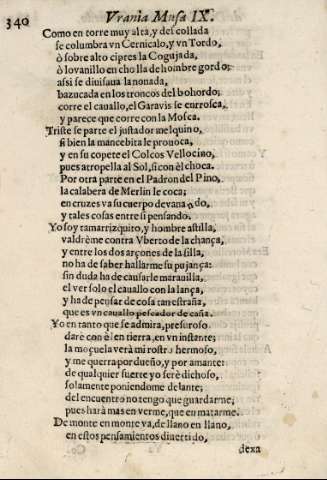 340
Urania Musa IX.
Como en torre muy alta, y descollada
se columbra vn Cernicalo, y vn Tordo,
ò sobre alto cipres la Cogujada,
ò lovanillo en cholla de hombre gordo;
assi se diuisaua la nonada,
bazucada en los troncos del bohordo;
corre el cauallo, el Garavis se currosca,
y parece que corre con la Mosca.
Triste se parte el justador mesquino,
si bien la mancebita le prouoca,
y en su copete el Colcos Vellocino,
pues atropella al Sol, si con èl choca.
Por otra parte en el Padron del Pino,
la calabera de Merlin le coca;
en cruzes va su cuerpo devanado,
y tales cosas entre si pensando.
Yo soy tamarrizquito, y hombre astilla,
valdrème contra Vberto de la chança,
y entre los dos arçones de la silla,
no ha de saber hallarme su pujança:
sin duda ha de causarle marauilla,
el ver solo el cauallo con la lança,
y ha de pensar de cosa tan estraña,
que es vn cauallo pescador de caña.
Yo en tanto que se admira, presuroso
darè con èl en tierra, en vn instante;
la moçuela verà mi rostro hermoso,
y me querra por dueño, y por amante:
de qualquier suerte yo serè dichoso,
solamente poniendome delante;
del encuentro no tengo que guardarme;
pues harà mas en verme, que en matarme.
De monte en monte va, de llano en llano,
en estos pensamientos diuertido,
dexa